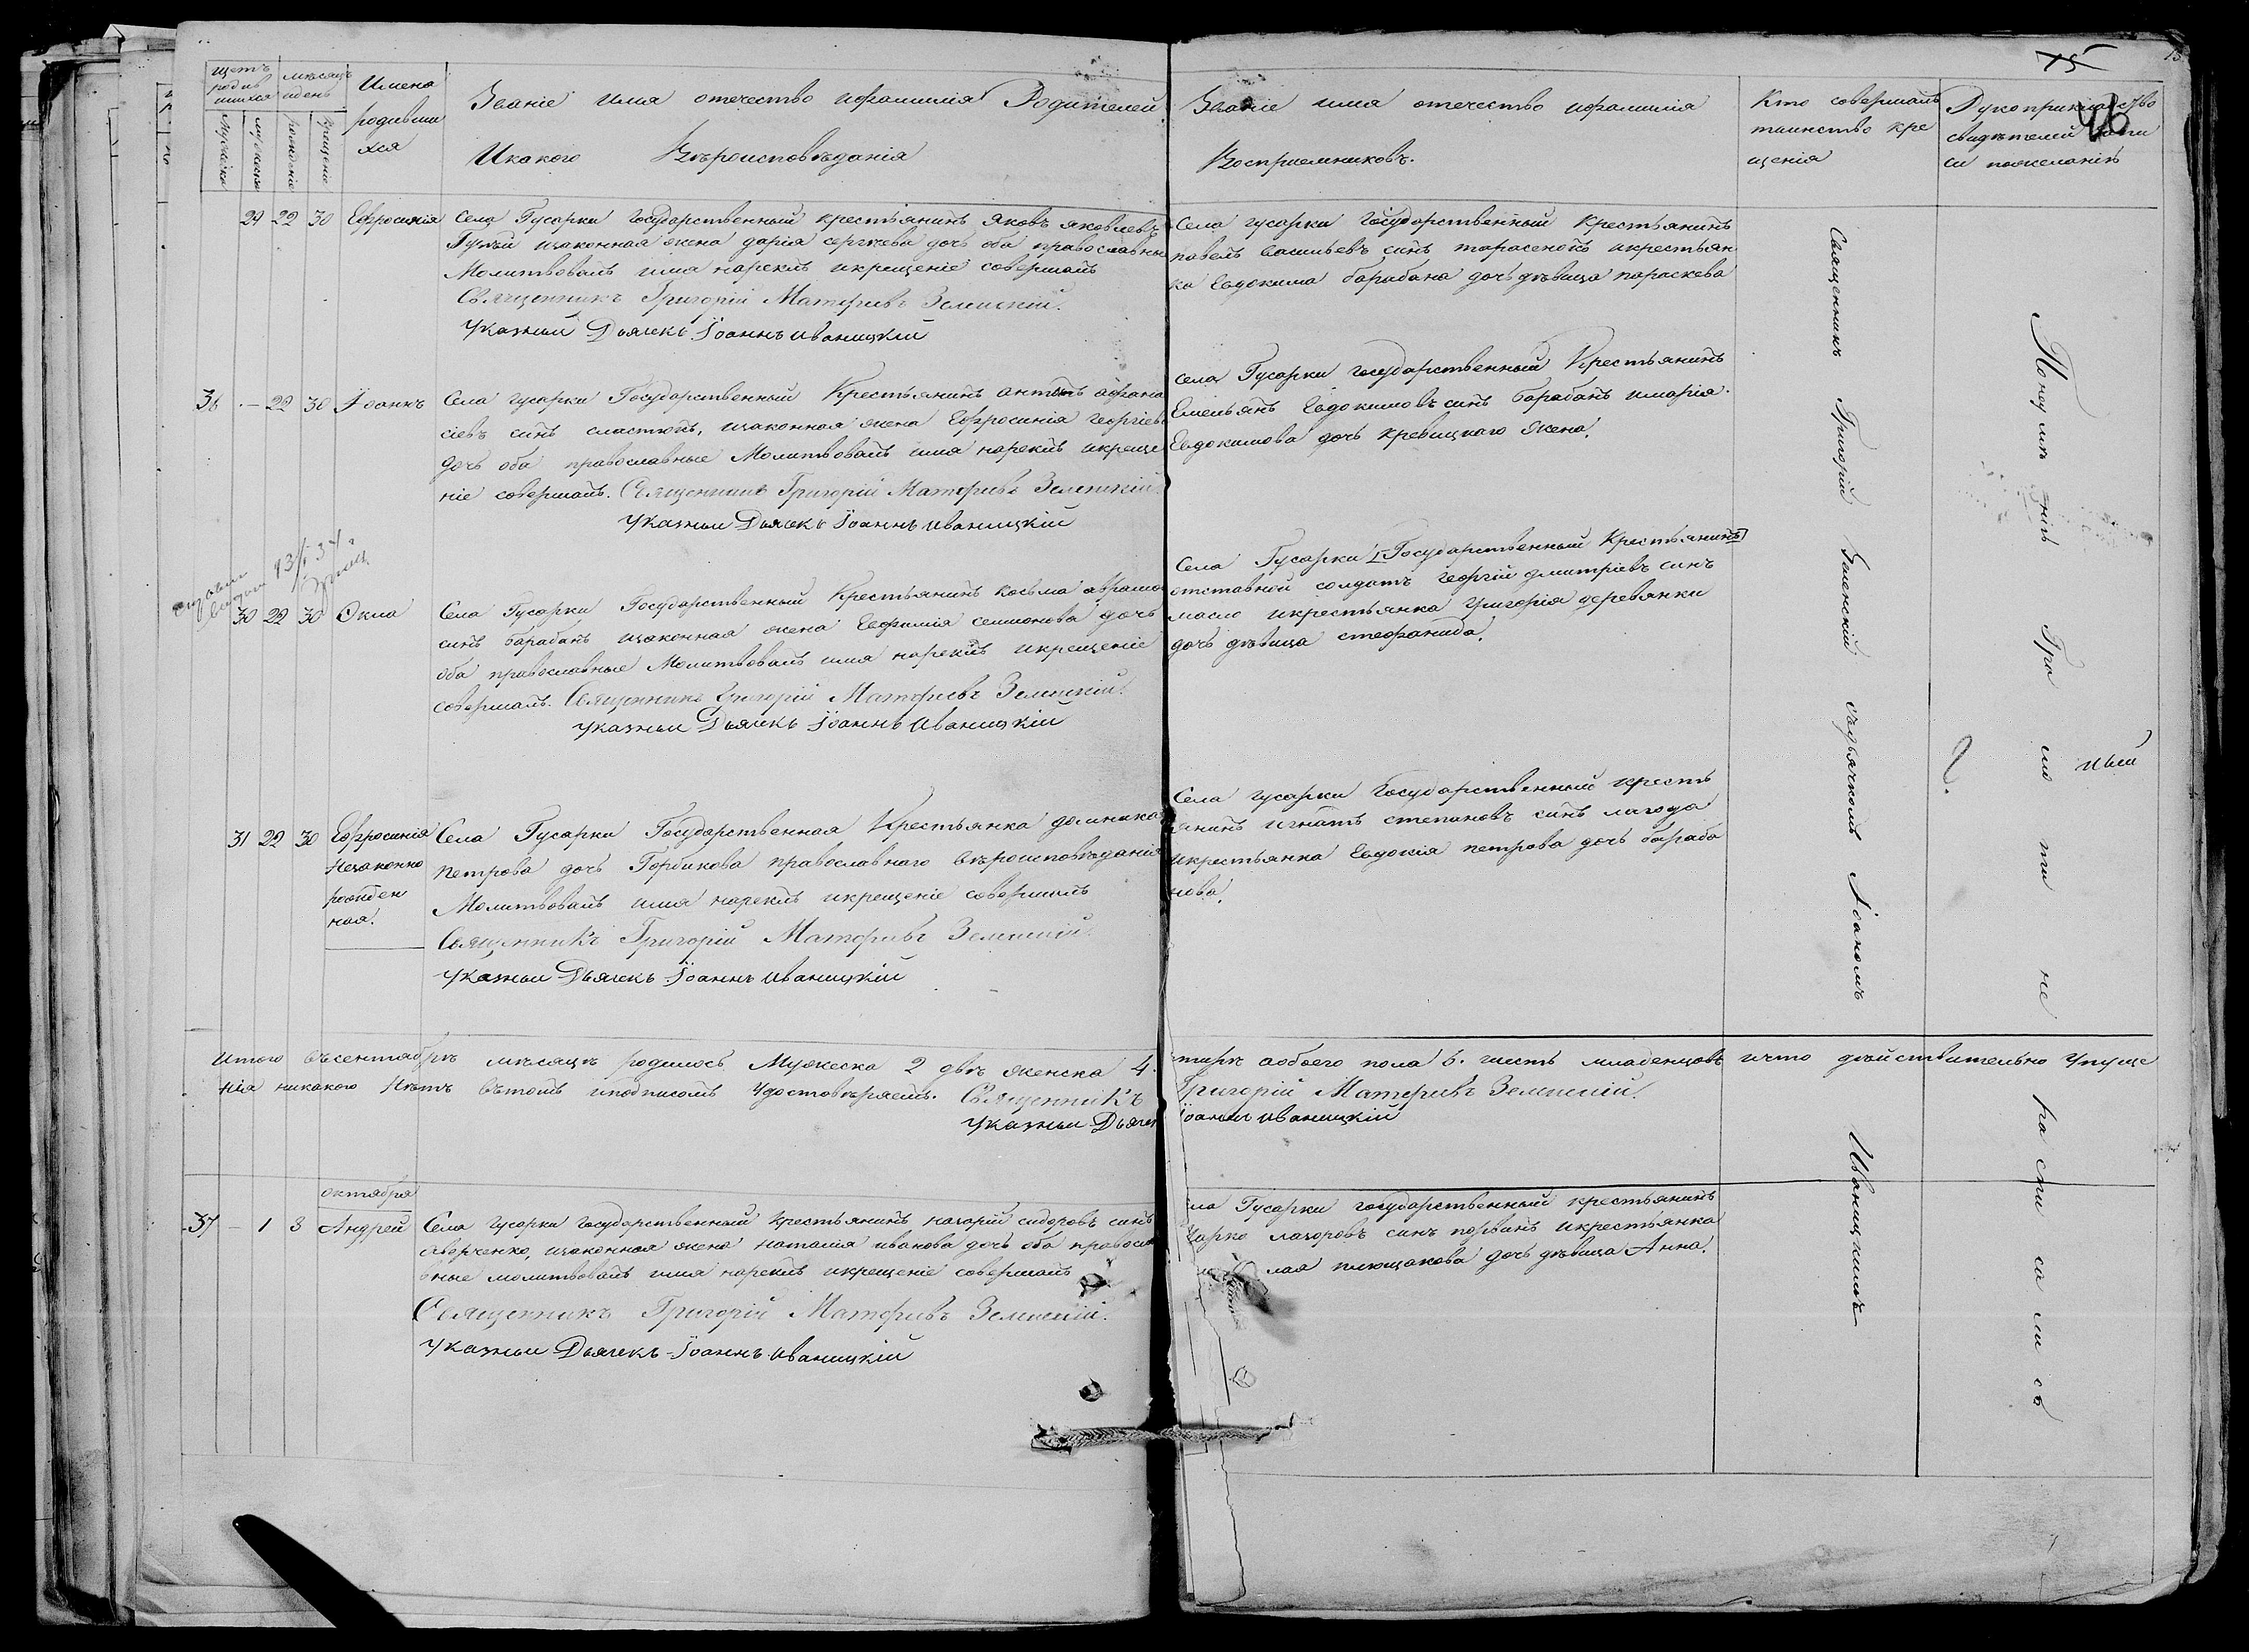 15
46
щетъ родив шихся
мѣсяцъ и день
Имена родивши хся
Званіе имя отечество ифамилія Родителей
Икакого Вѣроисповѣданія
Званіе имя отечество ифамилія
Восприемниковъ.
Кто совершалъ
таинство кре
щенія
Рукоприкладство
свидѣтелей запи
си пожеланію
рожденіе
крещеніе
29 22 30 Ефросинія
Села Гусарки государственный крестьянинъ Яковъ яковлевъ
изаконная жена дарія сергѣева дочь оба православные
Молитвовалъ имя нарекъ икрещеніе совершалъ
Священникъ Григорій Матфиевъ Зеленскій.
Указный Дьячекъ Іоаннъ иваницкій
Села гусарки государственный крестьянинъ
павелъ васильевъ синъ тарасенко икрестьян
ка Евдокима барабана дочь дѣвица параскева
36 - 22 30 Іоаннъ
Села гусарки Государственный Крестьянинъ антонъ афана
сіевъ синъ сластюнъ, изаконная жена Ефросинія георгіев
дочь оба православные Молитвовалъ имя нарекъ икреще
ніе совершалъ. Священникъ Григорій Матфиевъ Зеленскій.
Указный Дьячекъ Іоаннъ иваницкій
села Гусарки государственный Крестьянинъ
Емельянъ Евдокимовъ синъ барабанъ имарія
Евдокимова дочь кревицкаго жена.
30 22 30 Фекла
Села Гусарки Государственный Крестьянинъ Косьма аврамо
синъ барабанъ изаконная жена Евфимія семионова дочь
оба православные Молитвовалъ имя нарекъ икрещеніе
совершалъ. Священникъ Григорій Матфиевъ Зеленскій.
Указный Дьячекъ Іоаннъ Иваницкій
Села Гусарки [Государственный Крестьянинъ]
отставной солдатъ георгій дмитріевъ синъ
масло икрестьянка григорія деревянки
дочь дѣвица стефанида.
31 22 30 Ефросинія
Незаконно
рожден
ная.
Села Гусарки Государственная Крестьянка домника
петрова дочь Горбикова православнаго вѣроисповѣданія
Молитвовалъ имя нарекъ икрещеніе совершилъ
Священникъ Григорій Матфиевъ Зеленскій.
Указный Дьячекъ Іоаннъ Иваницкій
Села гусарки Государственный кресть
янинъ игнатъ степановъ синъ лагода
икрестьянка Евдокія петрова дочь бараба
нова.
Итого въсентябрѣ мѣсяцѣ родилось Мужеска 2 двѣ женска 4. тирѣ аобоего пола 6. шесть младенцовъ ичто дѣйствительно упуще
нія никакого Нѣтъ вътомъ иподписомъ Удостовѣряемъ. Священникъ Григорій Матфиевъ Зеленскій.
Указный Дьячек Іоаннъ иваницкій
октября
37 - 1 3 Андрей
Села гусарки государственный крестьянинъ назарій сидоровъ синъ
аверченко, изаконная жена наталія иванова дочь оба правосла
вные молитвовалъ имя нарекъ икрещеніе совершалъ
Священникъ Григорій Матфиевъ Зеленскій.
Указный Дьячекъ Іоаннъ Иваницкій
ела Гусарки государственный крестьянинъ
Марко лазоровъ синъ икрестьянка
дочь дѣвица Анна.
Священникъ Григорій Зеленскій съдьячкомъ Іоаномъ Иваницкимъ
Понеумѣнію Гра мо ти не ра спи са ли съ